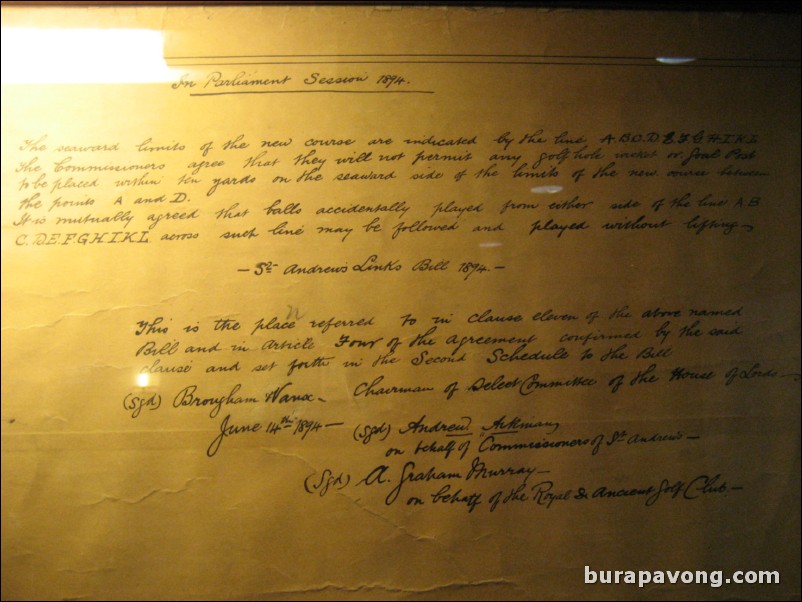 In Parliament Session 1894.
The seaward limits of the new course are indicated by the line A.B.C.D.E.F.G.H.I.K.L
The Commissioners agree that they will not permit any golf hole or Goal Post
to be placed within ten yards on the seaward side of the limits of the new course between
the points A and D.
It is mutually agreed that balls accidentally played from either side of the line A.B
C.D.E.F.G.H.I.K.L. across such line may be followed and played without lifting
— St. Andrews Links Bill 1894. —
This is the place referred to in clause eleven of the above named
Bill and in Article Four of the Agreement confirmed by the said
clause and set forth in the Second Schedule to the Bill
(Sgd) Brougham & Vaux — Chairman of Select Committee of the House of Lords —
June 14th 1894 — (Sgd) Andrew
on behalf of Commissioners of St. Andrews —
(Sgd) A. Graham Murray —
on behalf of the Royal & Ancient Golf Club. —
burapavong.com